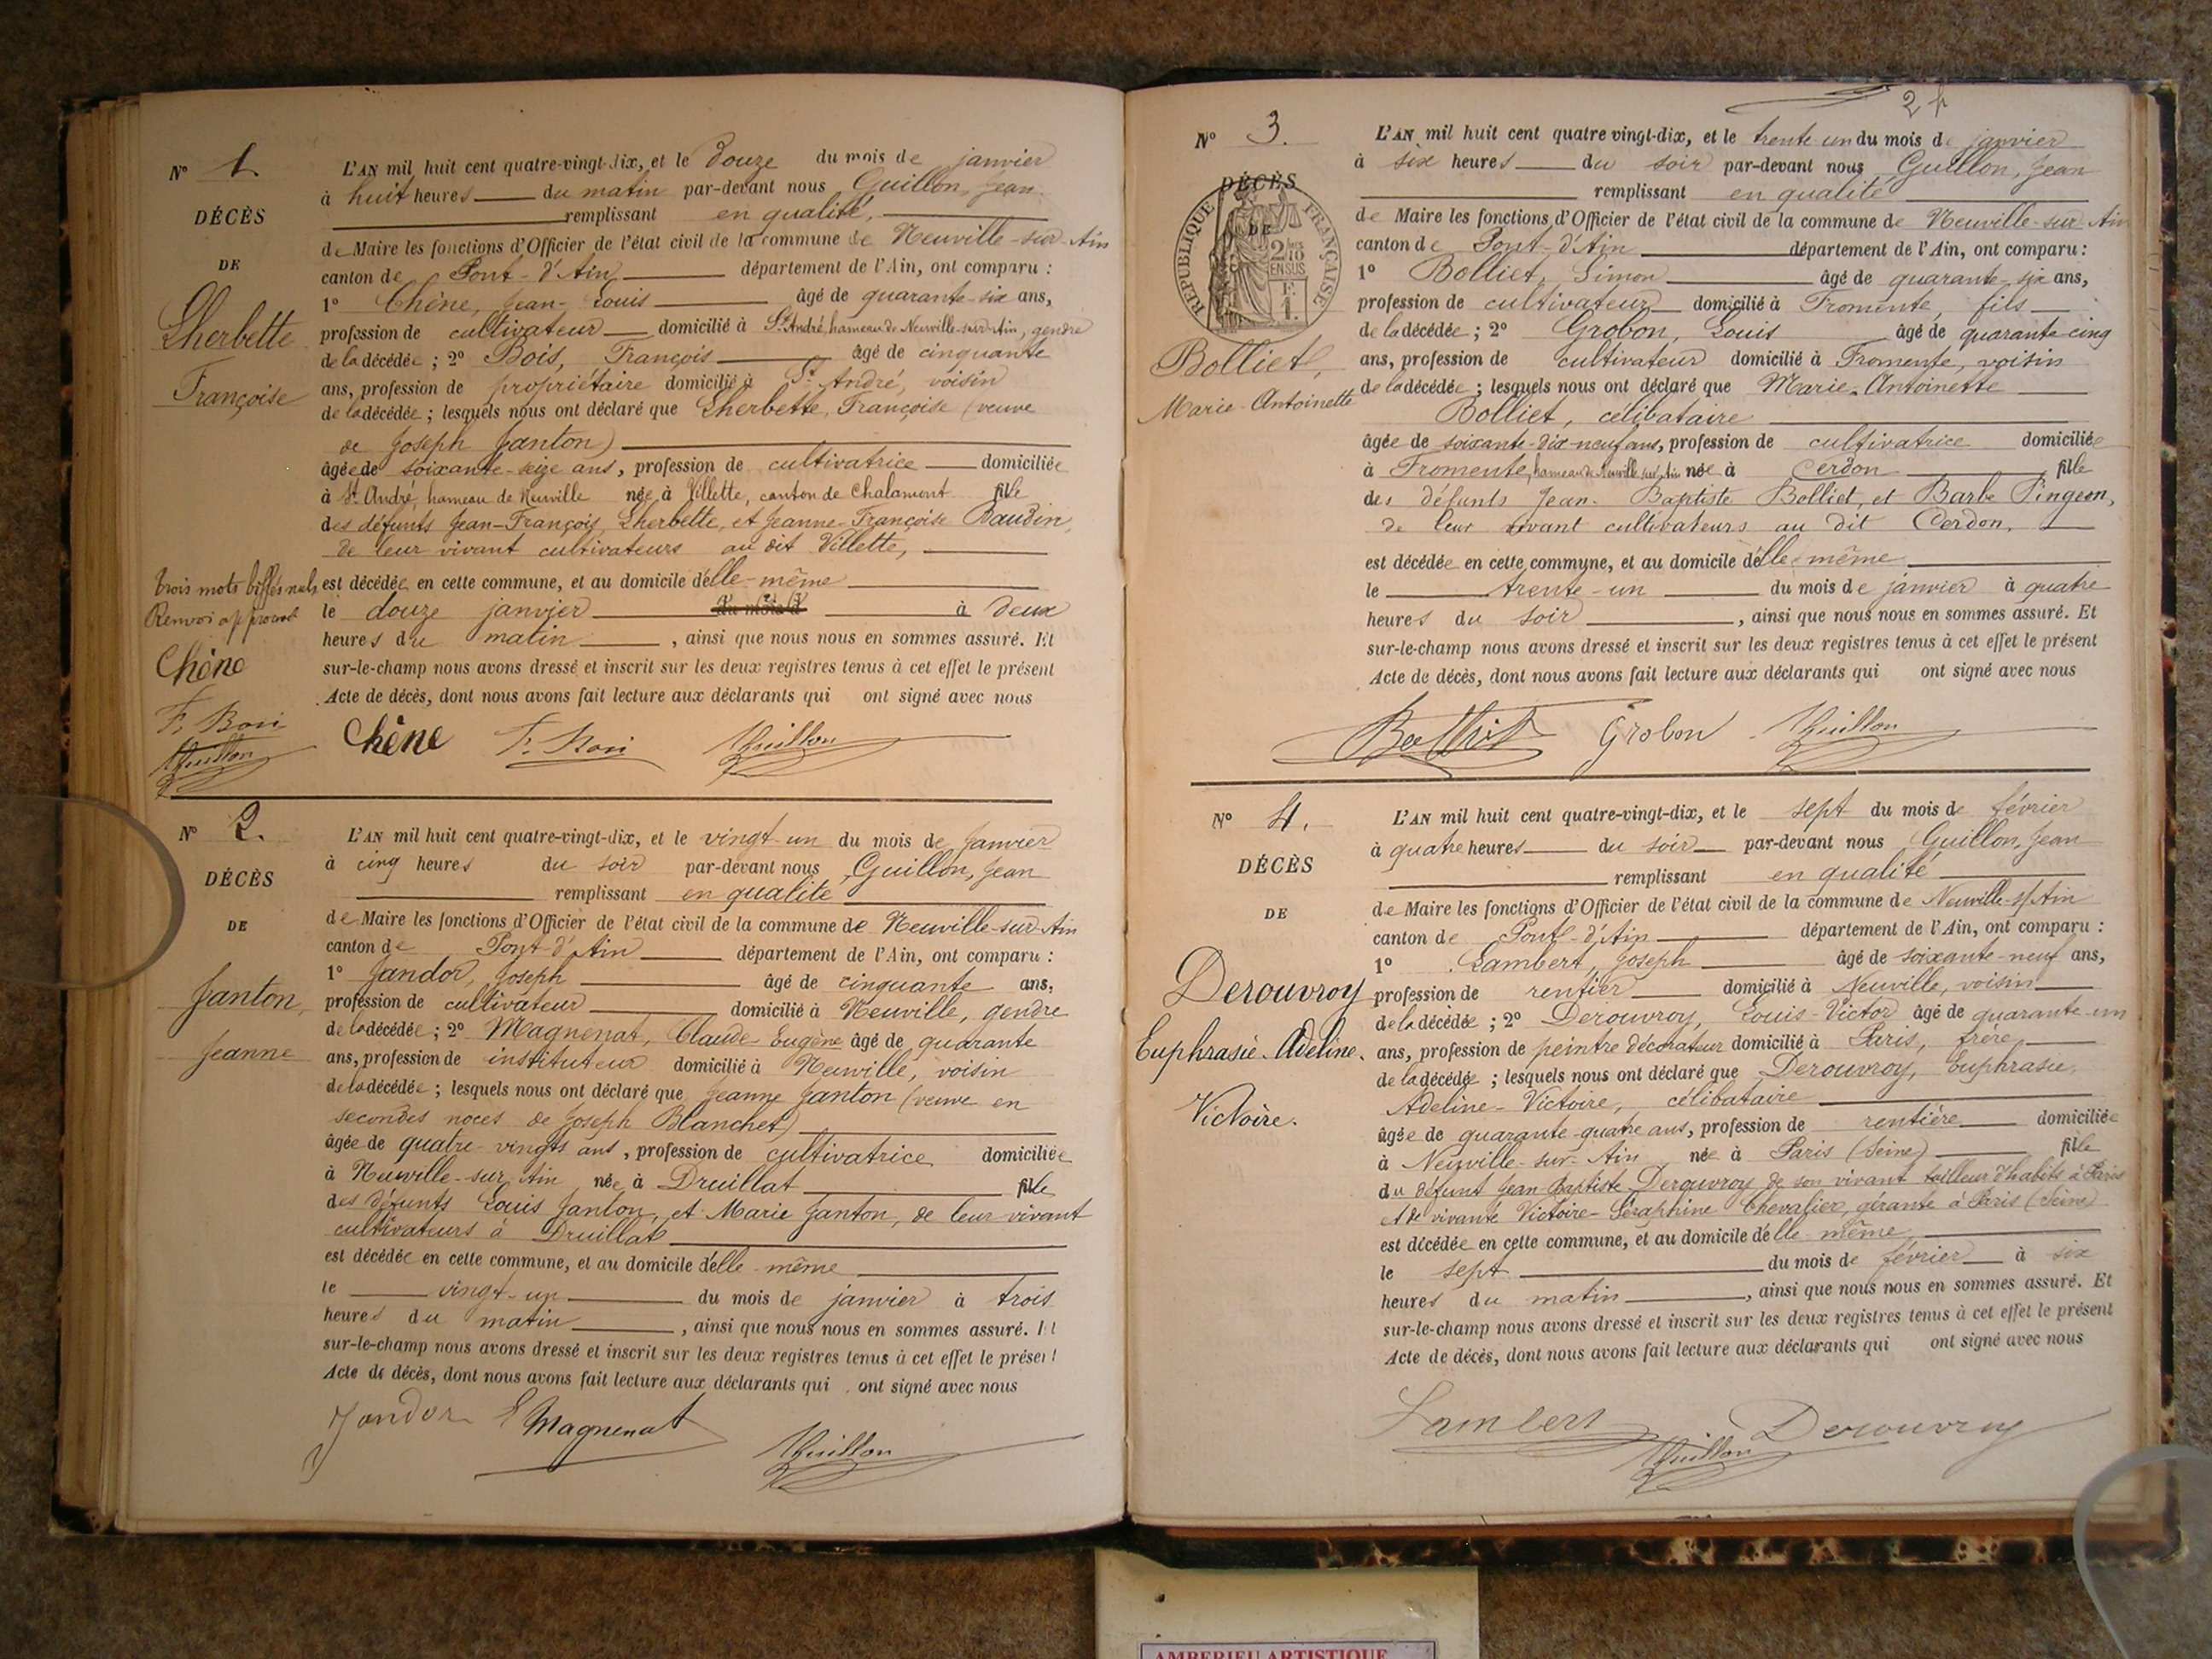 N° 1.
DÉCÈS
DE
Lherbette
Françoise
L'AN mil huit cent quatre-vingt-dix, et le douze du mois de janvier
à huit heures du matin par-devant nous Guillon, Jean
remplissant en qualité
de Maire les fonctions d'Officier de l'état civil de la commune de Neuville-sur-Ain
canton de Pont-d'Ain département de l'Ain, ont comparu :
1° Chêne, Jean-Louis âgé de quarante-six ans,
profession de cultivateur domicilié à St André, hameau de Neuville-sur-Ain, gendre
de la décédée ; 2° Bois, François âgé de cinquante
ans, profession de propriétaire domicilié à St André, voisin
de la décédée ; lesquels nous ont déclaré que Lherbette, Françoise (veuve
de Joseph Janton)
âgée de soixante-seize ans, profession de cultivatrice domiciliée
à St André, hameau de Neuville née à Villette, canton de Chalamont fille
des défunts Jean-François Lherbette, et Jeanne-Françoise Baudin,
de leur vivant cultivateurs au dit Villette,
est décédée en cette commune, et au domicile d'elle-même
le douze janvier du mois d à deux
heures du matin, ainsi que nous nous en sommes assuré. Et
sur-le-champ nous avons dressé et inscrit sur les deux registres tenus à cet effet le présent
Acte de décès, dont nous avons fait lecture aux déclarants qui ont signé avec nous
trois mots biffés nuls
Renvoi approuvé
Chêne
F. Bois
Guillon
Chêne F. Bois Guillon
N° 2.
DÉCÈS
DE
Janton,
Jeanne
L'AN mil huit cent quatre-vingt-dix, et le vingt-un du mois de janvier
à cinq heures du soir par-devant nous Guillon, Jean
remplissant en qualité
de Maire les fonctions d'Officier de l'état civil de la commune de Neuville-sur-Ain
canton de Pont-d'Ain département de l'Ain, ont comparu :
1° Jandor, Joseph âgé de cinquante ans,
profession de cultivateur domicilié à Neuville, gendre
de la décédée ; 2° Magnenat, Claude-Eugène âgé de quarante
ans, profession de instituteur domicilié à Neuville, voisin
de la décédée ; lesquels nous ont déclaré que Jeanne Janton (veuve en
secondes noces de Joseph Blanchet)
âgée de quatre-vingts ans, profession de cultivatrice domiciliée
à Neuville-sur-Ain née à Druillat fille
des défunts Louis Janton, et Marie Janton, de leur vivant
cultivateurs à Druillat
est décédée en cette commune, et au domicile d'elle-même
le vingt-un du mois de janvier à trois
heures du matin, ainsi que nous nous en sommes assuré. Et
sur-le-champ nous avons dressé et inscrit sur les deux registres tenus à cet effet le présent
Acte de décès, dont nous avons fait lecture aux déclarants qui ont signé avec nous
Jandor E Magnenat Guillon
2
N° 3.
DÉCÈS
DE
RÉPUBLIQUE FRANÇAISE
2/10
EN SUS
1.
Bolliet,
Marie-Antoinette
L'AN mil huit cent quatre vingt-dix, et le trente un du mois de janvier
à six heures du soir par-devant nous Guillon, Jean
remplissant en qualité
de Maire les fonctions d'Officier de l'état civil de la commune de Neuville-sur-Ain
canton de Pont-d'Ain département de l'Ain, ont comparu :
1° Bolliet, Simon âgé de quarante-six ans,
profession de cultivateur domicilié à Fromente, fils
de la décédée ; 2° Grobon, Louis âgé de quarante-cinq
ans, profession de cultivateur domicilié à Fromente, voisin
de la décédée ; lesquels nous ont déclaré que Marie-Antoinette
Bolliet, célibataire
âgée de soixante-dix-neuf ans, profession de cultivatrice domiciliée
à Fromente, hameau de Neuville sur Ain née à Cerdon fille
des défunts Jean-Baptiste Bolliet, et Barbe Pingeon,
de leur vivant cultivateurs au dit Cerdon,
est décédée en cette commune, et au domicile d'elle-même
le trente-un du mois de janvier à quatre
heures du soir, ainsi que nous nous en sommes assuré. Et
sur-le-champ nous avons dressé et inscrit sur les deux registres tenus à cet effet le présent
Acte de décès, dont nous avons fait lecture aux déclarants qui ont signé avec nous
Bolliet Grobon Guillon
N° 4.
DÉCÈS
DE
Derouvroy
Euphrasie-Adeline.
Victoire.
L'AN mil huit cent quatre-vingt-dix, et le sept du mois de février
à quatre heures du soir par-devant nous Guillon, Jean
remplissant en qualité
de Maire les fonctions d'Officier de l'état civil de la commune de Neuville-s/Ain
canton de Pont-d'Ain département de l'Ain, ont comparu :
1° Lambert, Joseph âgé de soixante-neuf ans,
profession de rentier domicilié à Neuville, voisin
de la décédée ; 2° Derouvroy, Louis-Victor âgé de quarante-un
ans, profession de peintre décorateur domicilié à Paris, frère
de la décédée ; lesquels nous ont déclaré que Derouvroy, Euphrasie
Adeline-Victoire, célibataire
âgée de quarante-quatre ans, profession de rentière domiciliée
à Neuville-sur-Ain née à Paris (Seine) fille
du défunt Jean Baptiste Derouvroy de son vivant tailleur d'habits à Paris
et de vivante Victoire-Séraphine Chevalier, gérante à Paris (Seine)
est décédée en cette commune, et au domicile d'elle-même
le sept du mois de février à six
heures du matin, ainsi que nous nous en sommes assuré. Et
sur-le-champ nous avons dressé et inscrit sur les deux registres tenus à cet effet le présent
Acte de décès, dont nous avons fait lecture aux déclarants qui ont signé avec nous
Lambert Derouvroy
Guillon
AMBERIEU ARTISTIQUE